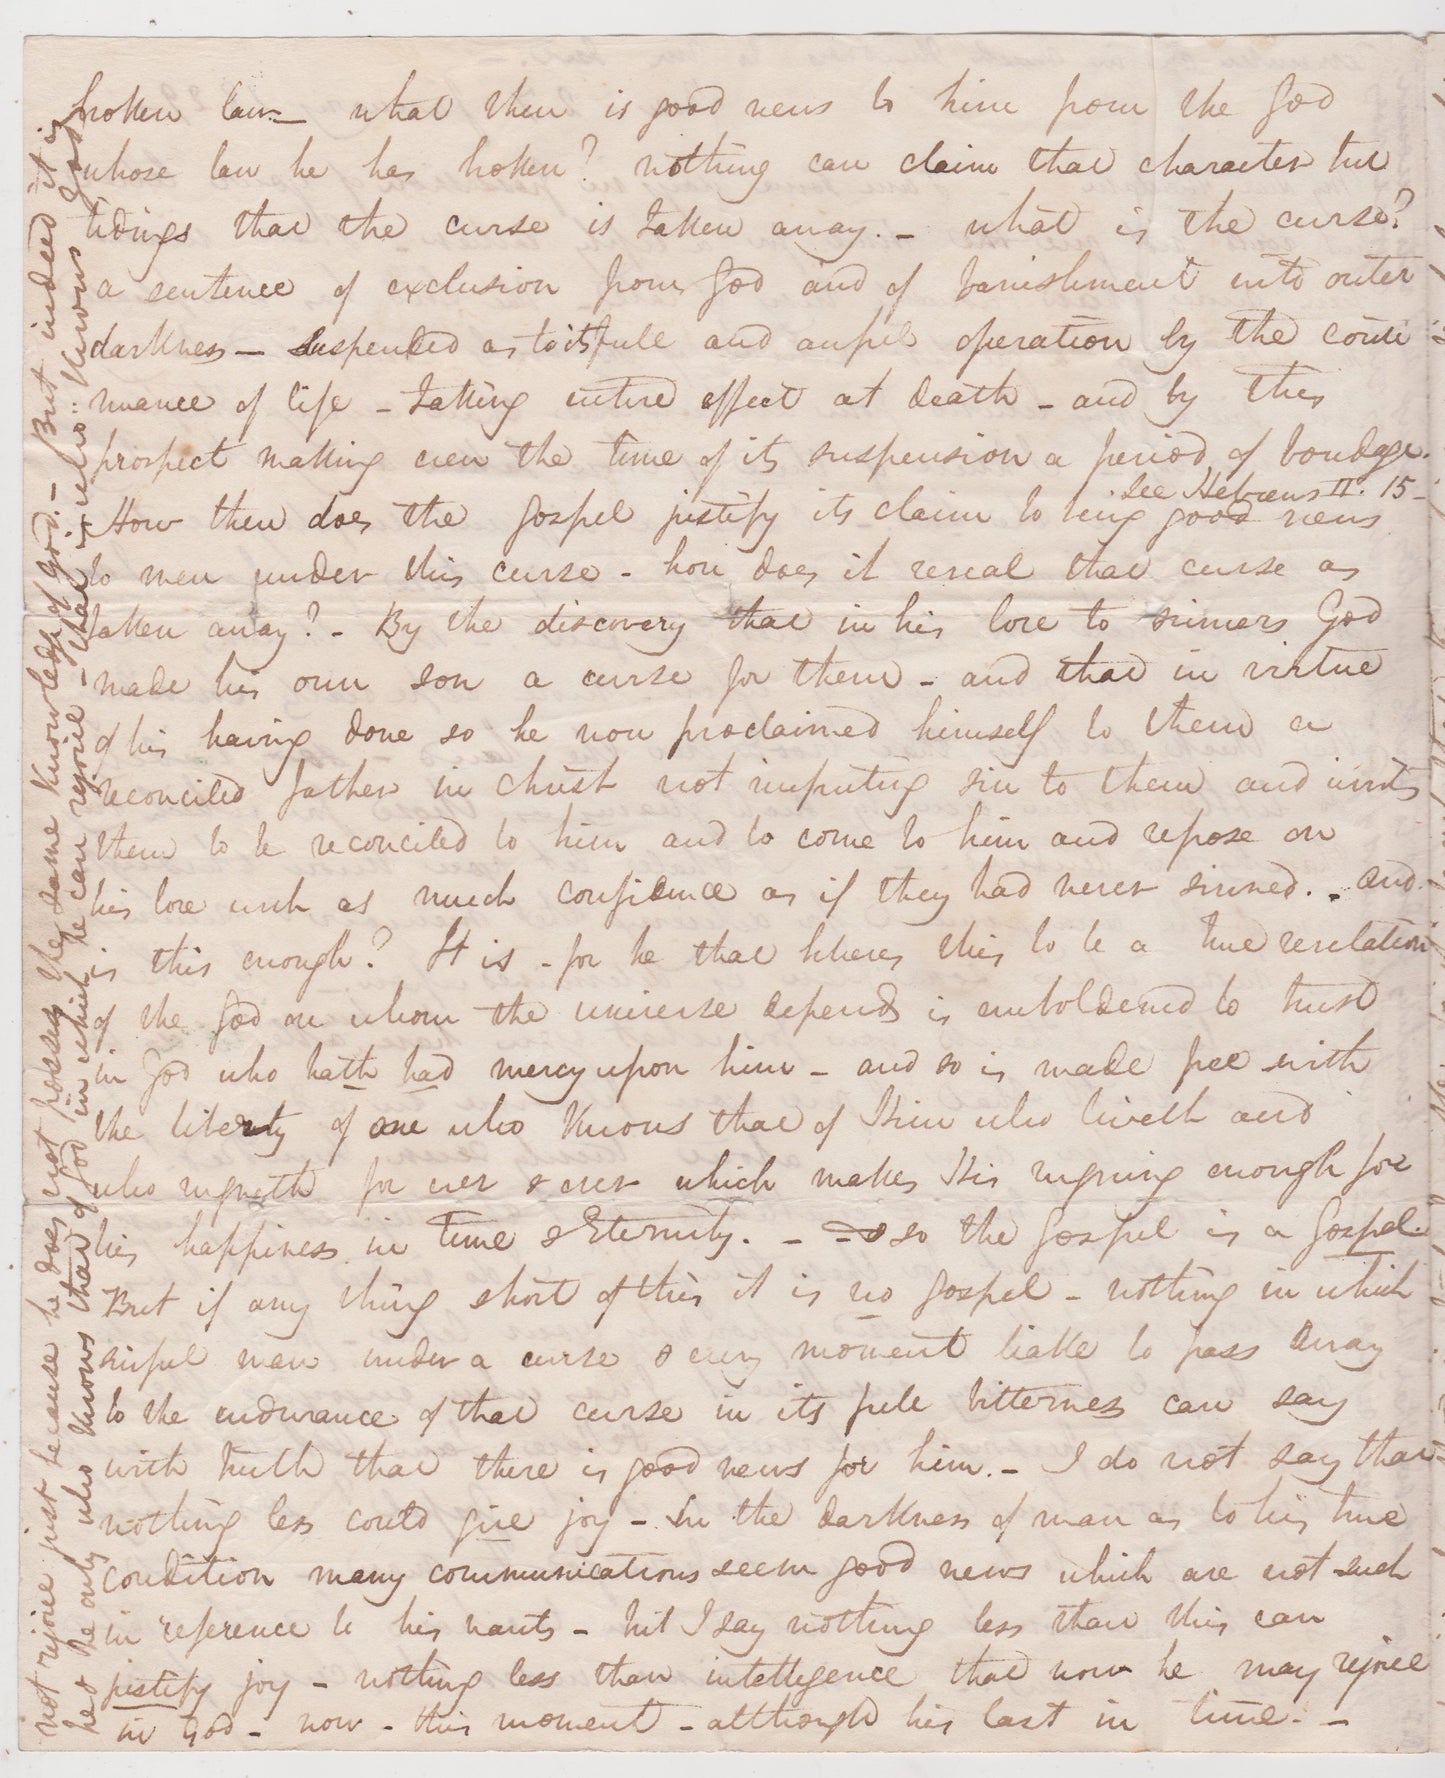 broken law — what then is good news to him from the God
whose law he has broken? nothing can claim that character but
tidings that the curse is taken away. — what is the curse?
a sentence of exclusion from God and of banishment into outer
darkness — suspended as to its full and awful operation by the conti
nuance of life — taking entire effect at death — and by this
prospect making even the time of its suspension a period of bondage.
See Hebrews II. 15 —
How then does the gospel justify its claim to being good news
to men under this curse — how does it reveal that curse as
taken away? — By the discovery that in his love to sinners God
made his own son a curse for them — and that in virtue
of his having done so he now proclaimed himself to them a
reconciled father in Christ not imputing sin to them and invites
them to be reconciled to him and to come to him and repose on
his love with as much confidence as if they had never sinned. — and
is this enough? It is — for he that believes this to be a true revelation
of the God on whom the universe depends is emboldened to trust
in God who hath had mercy upon him — and so is made free with
the liberty of one who knows that of Him who liveth and
who reigneth for ever & ever which makes His reigning enough for
his happiness in time & Eternity. — — so the Gospel is a Gospel.
But if any thing short of this it is no gospel — nothing in which
sinful man under a curse & every moment liable to pass away
to the endurance of that curse in its full bitterness can say
with truth that there is good news for him. — I do not say that
nothing less could give joy — In the darkness of man as to his true
condition many communications seem good news which are not such
in reference to his wants — but I say nothing less than this can
justify joy — nothing less than intelligence that now he may rejoice
in God — now — this moment — although his last in time. —
not rejoice just because he does not possess the same knowledge of God. — But indeed it is
he & he only who knows that of God in which he can rejoice — that is who knows God